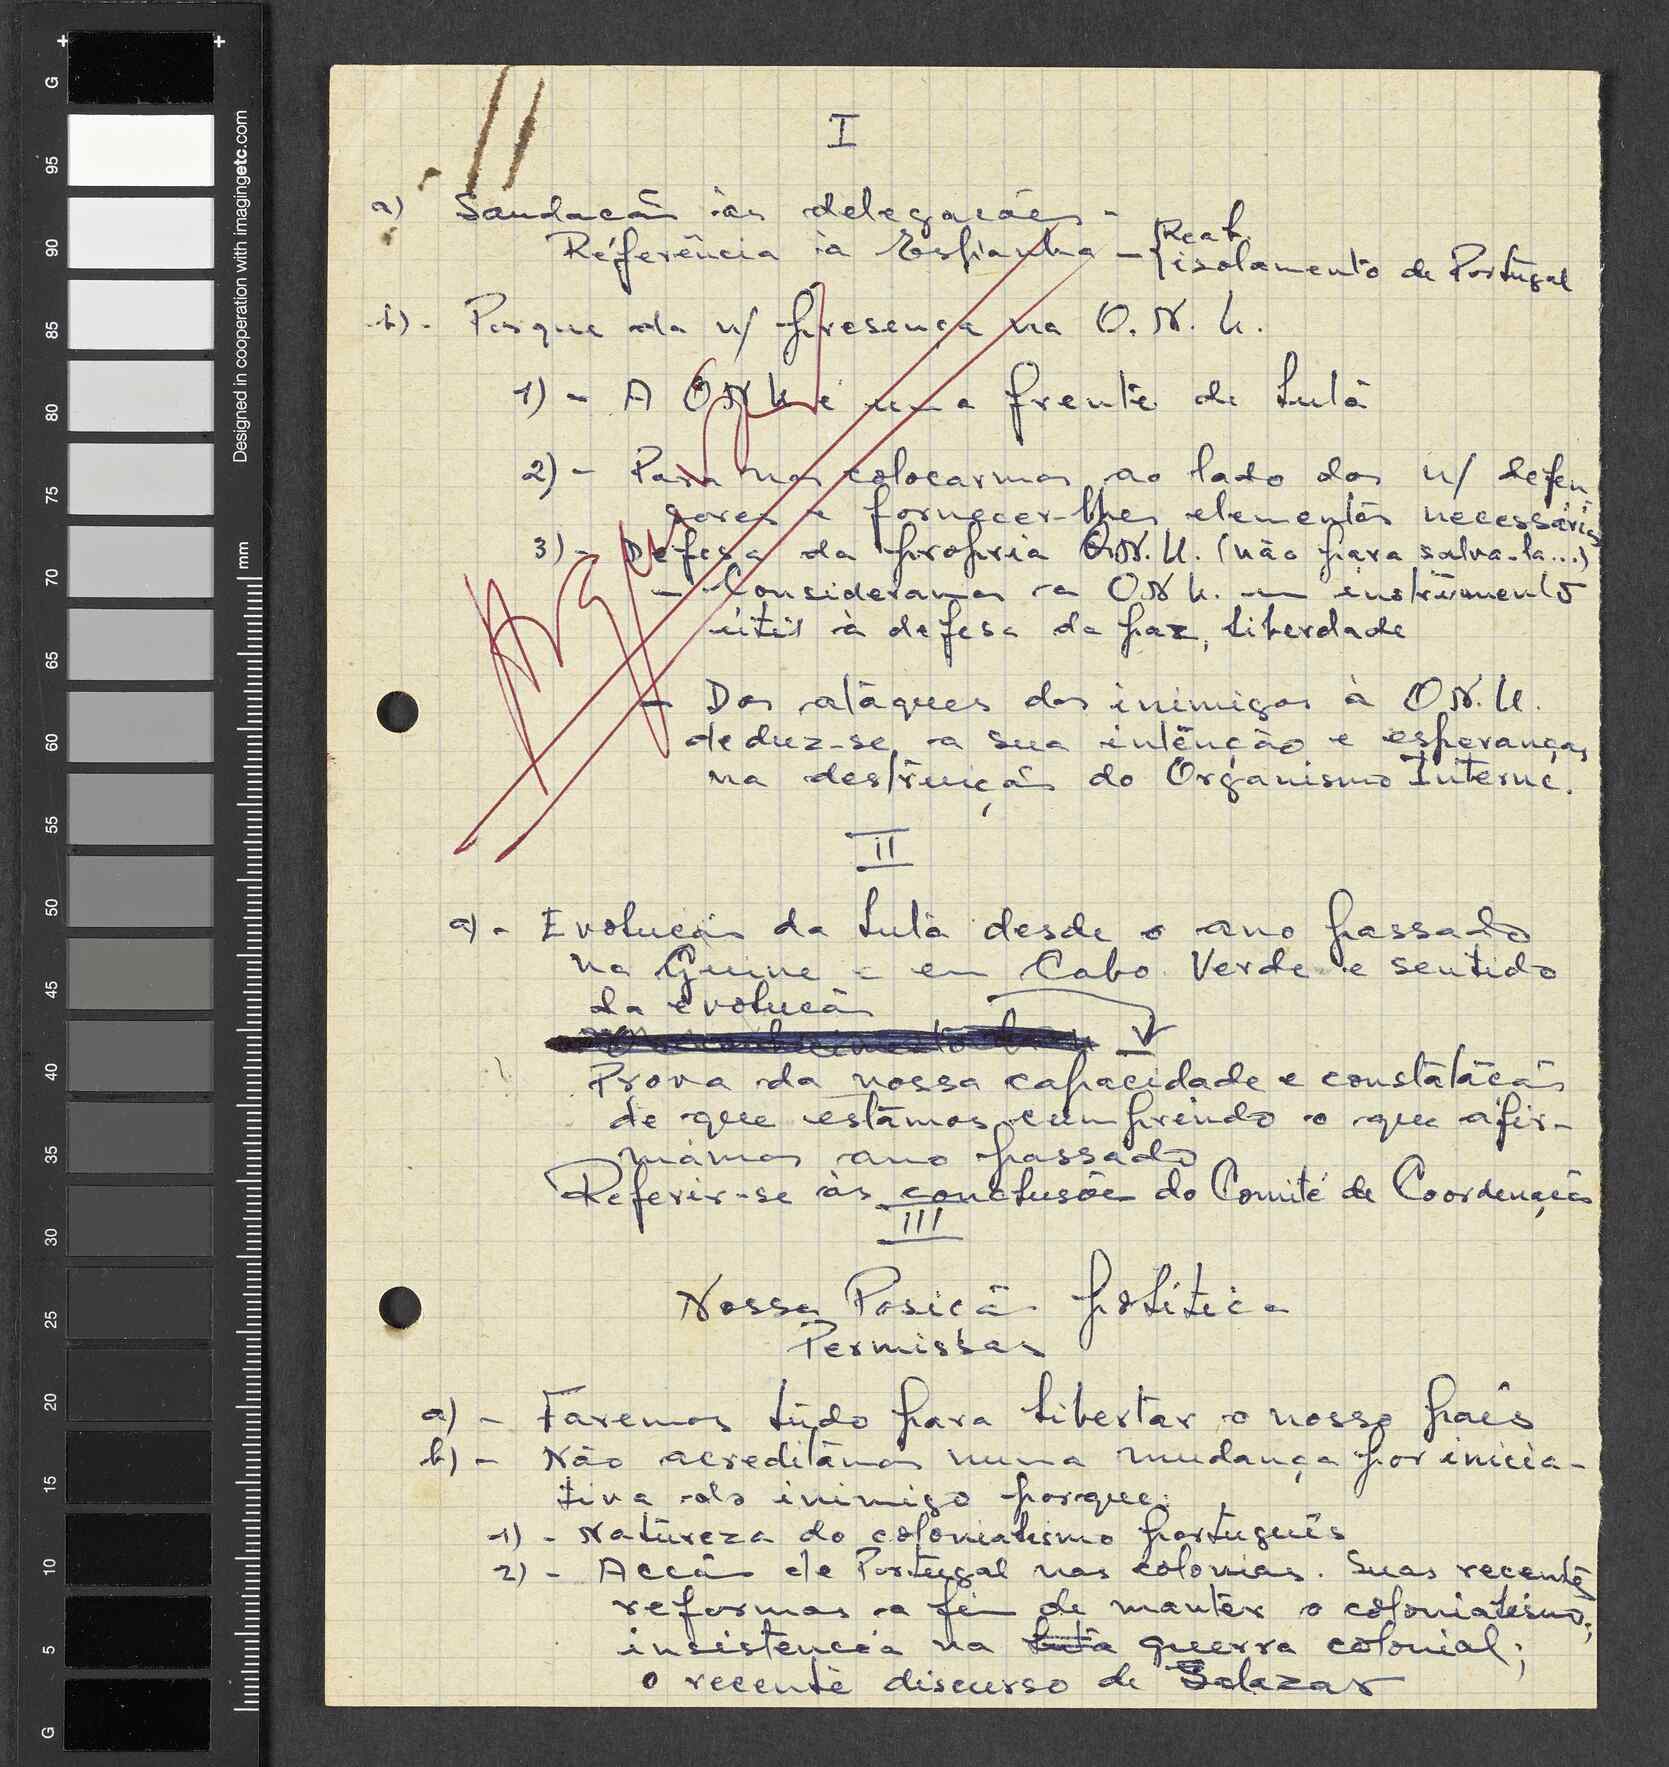 I
a) Saudação às delegações -
Referência à Espanha - { Reaf.
isolamento de Portugal
b) - Porque da n/ presença na O.N.U.
1) - A ONU é uma frente de luta
2) - Para nos colocarmos ao lado dos n/ defen
sores e fornecer-lhes elementos necessários
3) - Defesa da propria O.N.U. (não para salva-la...)
- Consideramos a ONU. um instrumento
útil à defesa da paz, liberdade
- Dos atáques dos inimigos à O.N.U.
deduz-se a sua intenção e esperanças
na destruição do Organismo Internc.
II
a) - Evolução da luta desde o ano passado
na Guine e em Cabo Verde e sentido
da evolução
Prova da nossa capacidade e constatação
de que estamos cumprindo o que afir-
mámos ano passado
Referir-se às conclusões do Comité de Coordenação
III
Nossa Posição política
Permissas
a) - Faremos tudo para libertar o nosso país
b) - Não acreditamos numa mudança por inicia-
tiva do inimigo porque:
1) - Natureza do colonialismo português
2) - Acção de Portugal nas colonias. Suas recentes
reformas a fim de manter o colonialismo;
insistencia na luta guerra colonial;
o recente discurso de Salazar
G
95
90
85
80
75
70
65
60
55
50
45
40
35
30
25
20
15
10
5
G
mm
Designed in cooperation with imagingetc.com